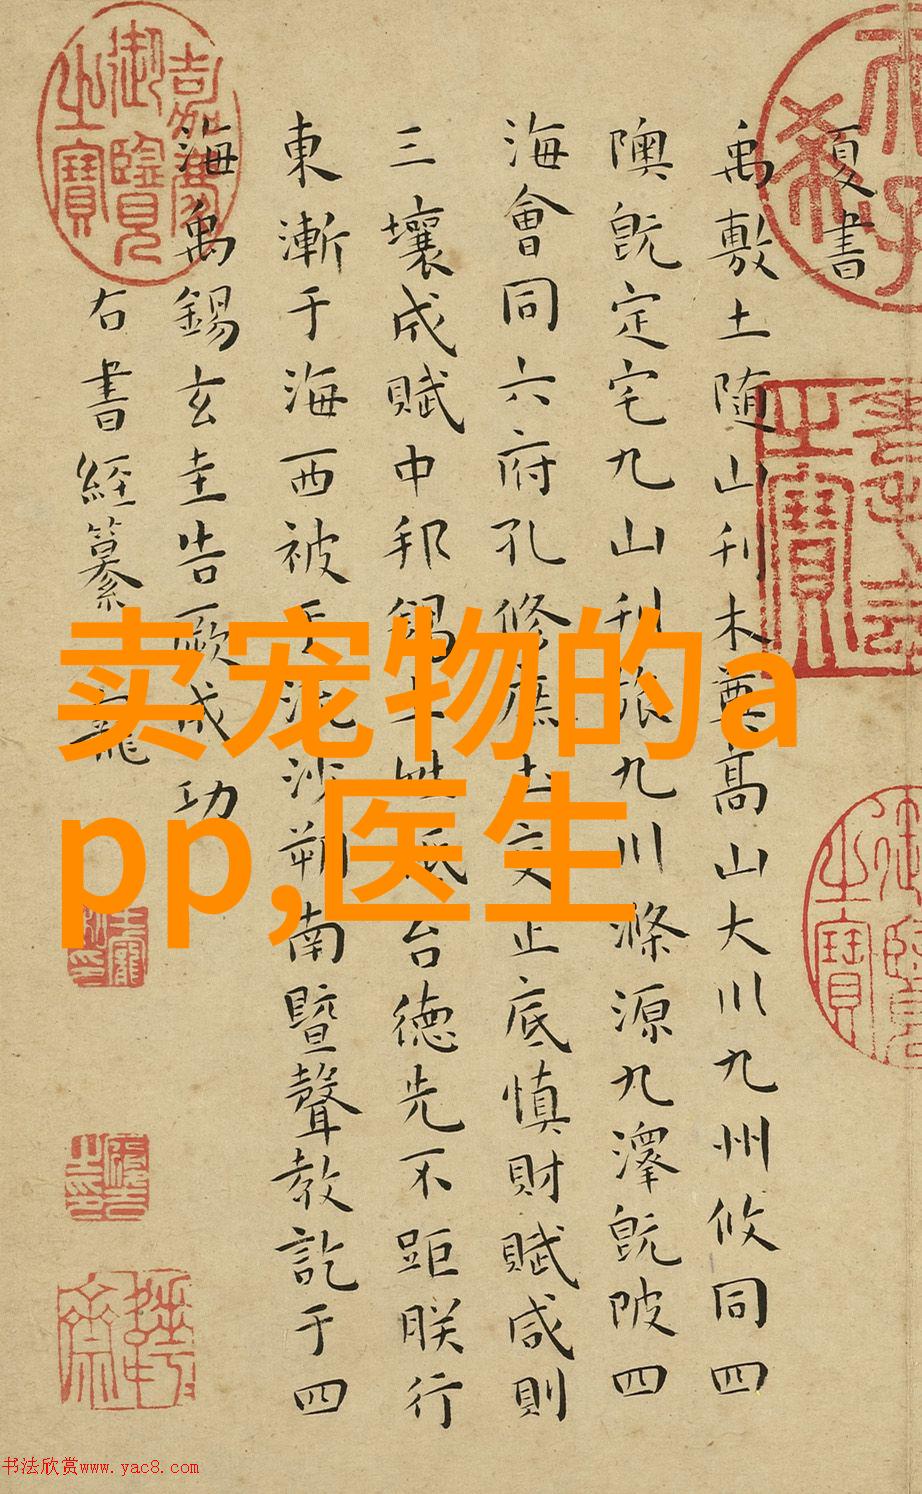 夏書
禹敷土随山刊木奠高山大川九州攸同四
隩既定宅九山刊旅九川滌源九澤既陂四
海會同六府孔修庶土交正底慎財賦咸則
三壤成賦中邦錫土姓祗台德先不距朕行
東漸于海西被于流沙朔南暨聲教訖于四
海禹錫玄圭告厥成功
右書經纂 寵
嘉慶御覽之寶
卖宠物的a
pp,医生
书法欣赏www.yac8.com